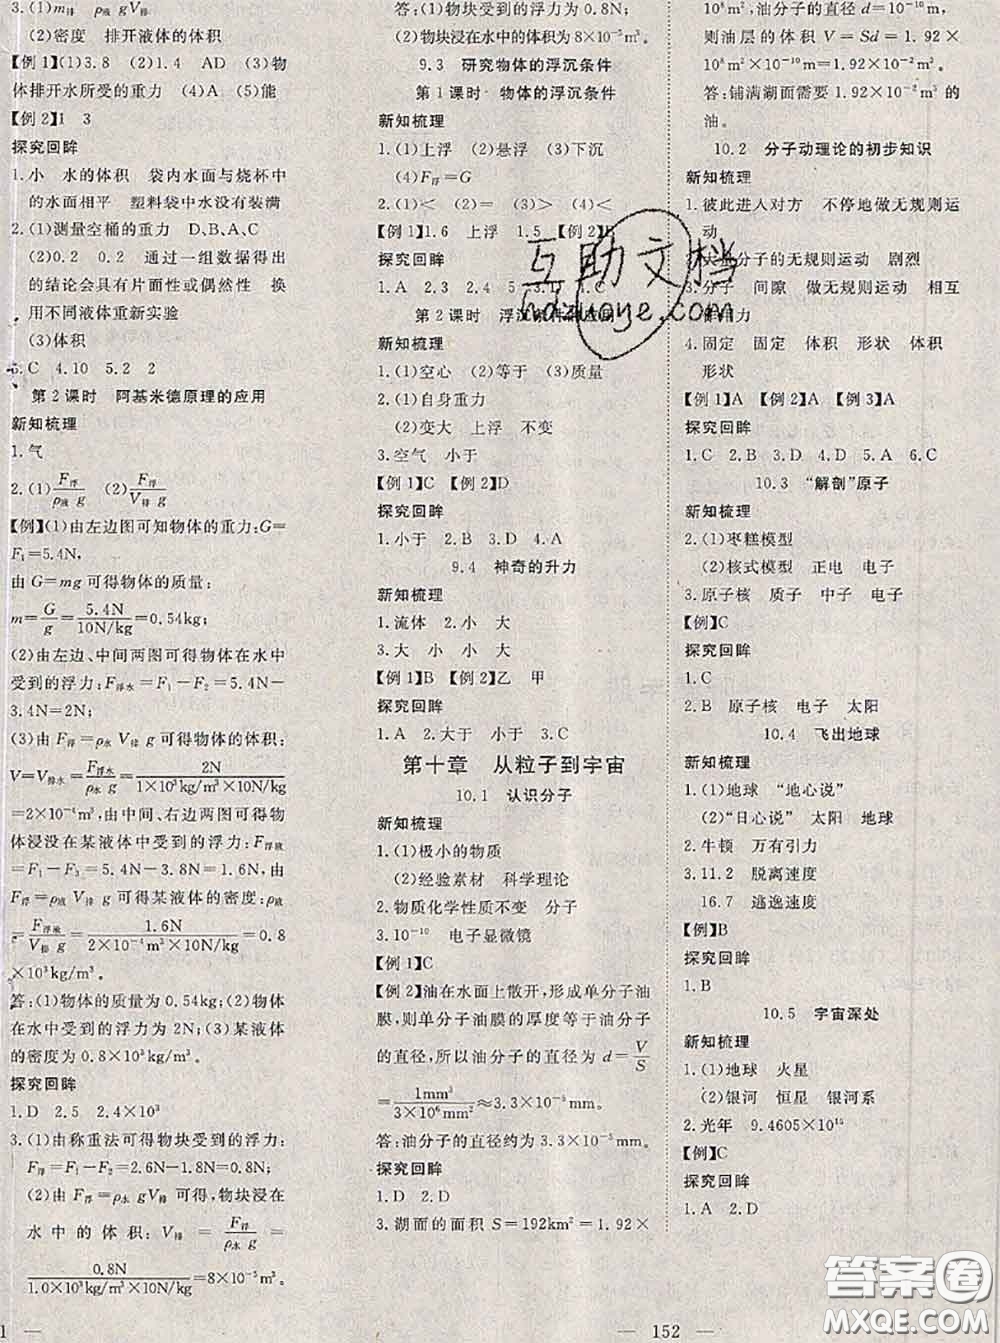 3.(1)m排 ρ液 gV排
(2)密度 排开液体的体积
【例1】(1)3.8 (2)1.4 AD (3)物
体排开水所受的重力 (4)A (5)能
【例2】1 3
探究回眸
1.小 水的体积 袋内水面与烧杯中
的水面相平 塑料袋中水没有装满
2.(1)测量空桶的重力 D、B、A、C
(2)0.2 0.2 通过一组数据得出
的结论会具有片面性或偶然性 换
用不同液体重新实验
(3)体积
3.C 4.10 5.2 2
第2课时 阿基米德原理的应用
新知梳理
1.气
2.(1)F浮/ρ液 g (2)F浮/V排 g
【例】(1)由左边图可知物体的重力:G=
F₁=5.4N,
由G=mg可得物体的质量:
m=G/g=5.4N/10N/kg=0.54kg;
(2)由左边、中间两图可得物体在水中
受到的浮力:F浮水=F₁-F₂=5.4N-
3.4N=2N;
(3)由F浮=ρ水 V排 g可得物体的体积:
V=V排水=F浮水/ρ水 g=2N/1×10³kg/m³×10N/kg=
2×10⁻⁴m³,由左边、右边两图可得物
体浸没在某液体中受到的浮力:F浮液
=F₁-F₃=5.4N-3.8N=1.6N,由
F浮=ρ液 V排 g可得某液体的密度:ρ液
=F浮液/V排 g=1.6N/2×10⁻⁴m³×10N/kg=0.8
×10³kg/m³。
答:(1)物体的质量为0.54kg;(2)物体
在水中受到的浮力为2N;(3)某液体
的密度为0.8×10³kg/m³。
探究回眸
1.D 2.5 2.4×10³
3.(1)由称重法可得物块受到的浮力:
F浮=F₁-F₂=2.6N-1.8N=0.8N;
(2)由F浮=ρ水 gV排得,物块浸在
水中的体积:V排=F浮/ρ水 g=
0.8N/1.0×10³kg/m³×10N/kg=8×10⁻⁵m³。
1 —
答:(1)物块受到的浮力为0.8N;
(2)物块浸在水中的体积为8×10⁻⁵m³。
9.3 研究物体的浮沉条件
第1课时 物体的浮沉条件
新知梳理
1.(1)上浮 (2)悬浮 (3)下沉
(4)F浮=G
2.(1)< (2)= (3)> (4)<
【例1】1.6 上浮 1.5 【例2】B
探究回眸
1.A 2.C 3.D 4.C
第2课时 浮沉条件的应用
新知梳理
1.(1)空心 (2)等于 (3)质量
2.(1)自身重力
(2)变大 上浮 不变
3.空气 小于
【例1】C 【例2】D
探究回眸
1.小于 2.C 3.D 4.A
9.4 神奇的升力
新知梳理
1.流体 2.小 大
3.大 小 小 大
【例1】B 【例2】乙 甲
探究回眸
1.A 2.大于 小于 3.C
第十章 从粒子到宇宙
10.1 认识分子
新知梳理
1.(1)极小的物质
(2)经验素材 科学理论
2.物质化学性质不变 分子
3.10⁻¹⁰ 电子显微镜
【例1】C
【例2】油在水面上散开,形成单分子油
膜,则单分子油膜的厚度等于油分子
的直径,所以油分子的直径为d=V/S
=1mm³/3×10⁶mm²≈3.3×10⁻⁷mm。
答:油分子的直径约为3.3×10⁻⁷mm。
探究回眸
1.D 2.D
3.湖面的面积S=192km²=1.92×
— 152 —
10⁸m²,油分子的直径d=10⁻¹⁰m,
则油层的体积V=Sd=1.92×
10⁸m²×10⁻¹⁰m=1.92×10⁻²m³。
答:铺满湖面需要1.92×10⁻²m³的
油。
10.2 分子动理论的初步知识
新知梳理
1.彼此进入对方 不停地做无规则运
动
2.大量分子的无规则运动 剧烈
3.分子 间隙 做无规则运动 相互
作用力
4.固定 固定 体积 形状 体积
形状
【例1】A 【例2】A 【例3】A
探究回眸
1.C 2.B 3.D 4.D 5.A 6.C
10.3 “解剖”原子
新知梳理
2.(1)枣糕模型
(2)核式模型 正电 电子
3.原子核 质子 中子 电子
【例】C
探究回眸
1.C
2.B 原子核 电子 太阳
10.4 飞出地球
新知梳理
1.(1)地球 “地心说”
(2)“日心说” 太阳 地球
2.牛顿 万有引力
3.11.2 脱离速度
16.7 逃逸速度
【例】B
探究回眸
1.B
10.5 宇宙深处
新知梳理
1.(1)地球 火星
(2)银河 恒星 银河系
2.光年 9.4605×10¹⁵
【例】C
探究回眸
1.A 2.D
互助文档
hdzuoye.com
答案圈
MXQE.COM